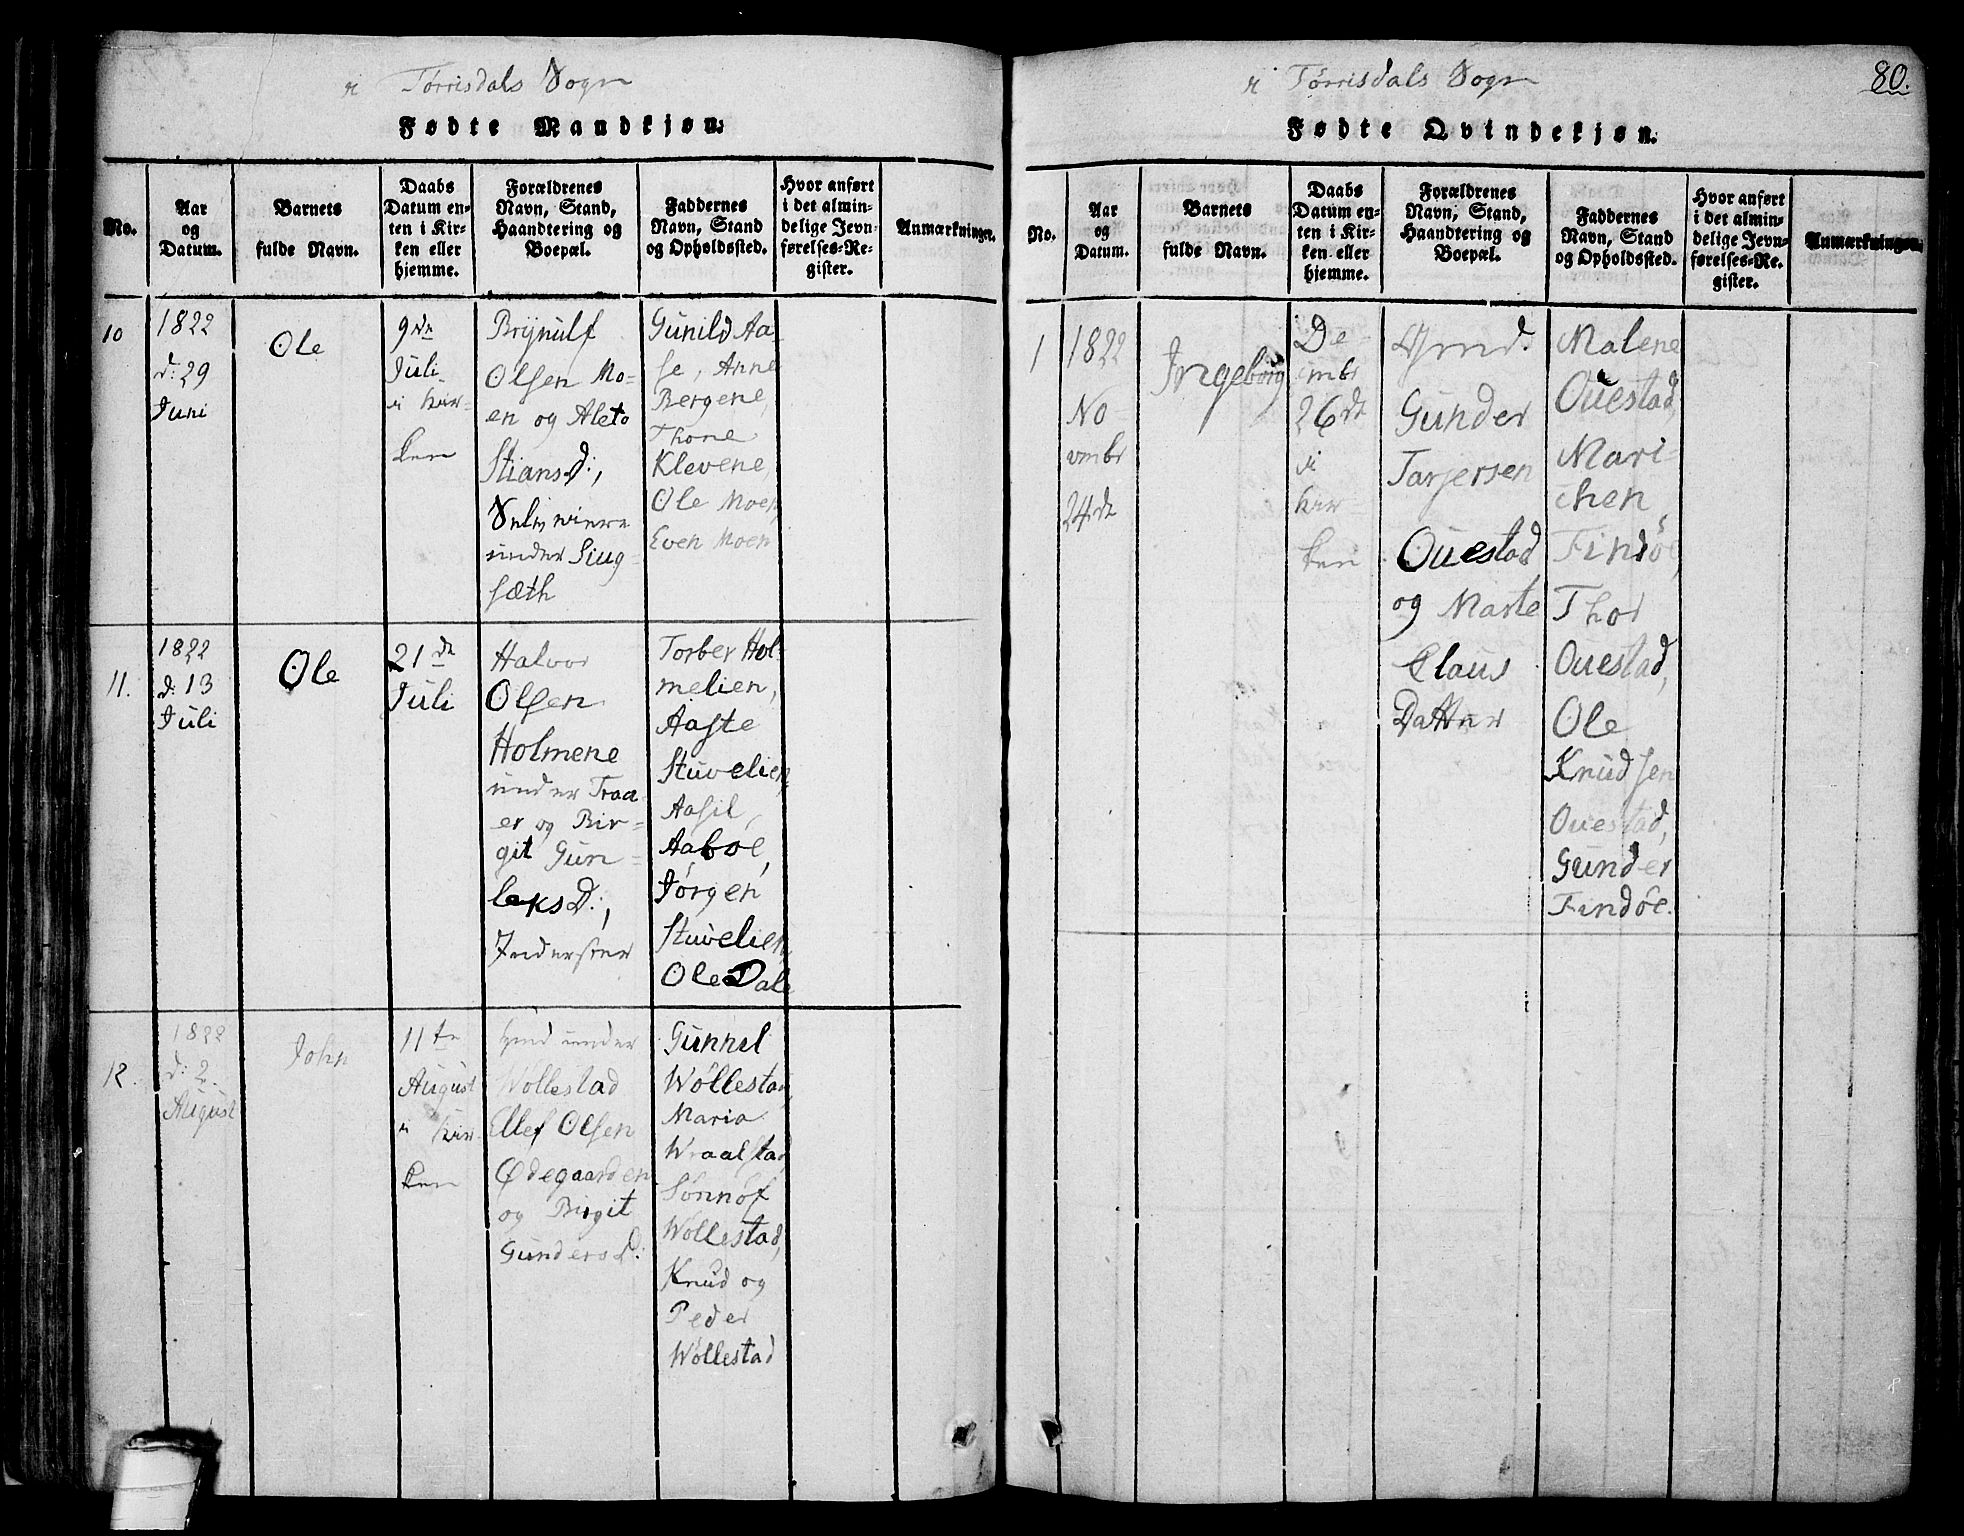 i Tørrisdals Sogn
Fødte Mandkjøn.
No.
Aar
og
Datum.
Barnets
fulde Navn.
Daabs
Datum en-
ten i Kir-
ken eller
hjemme.
Forældrenes
Navn, Stand,
Haandtering og
Boepæl.
Faddernes
Navn, Stand
og Opholdssted.
Hvor anført
i det almin-
delige Jevn-
førelses-Re-
gister.
Anmærkninger.
10
1822
d: 29
Juni
Ole
9de
Juli
i Kir-
ken
Brynulf
Olsen Mo-
en og Aleto
Stiansd:,
under
sæth
Gunild Aa-
se, Anne
Bergene,
Thone
Klevene,
Ole Moen,
Even Moen
11.
1822
d: 13
Juli
Ole
21de
Juli
Halvor
Olsen
Holmene
under Traa-
er og Bir-
git Gun-
leksD:,
Inderster
Torber Hol-
melien,
Aaste
Stuvelien,
Aasil
Aaboe,
Jørgen
Stuvelien,
Ole Dale
12.
1822
d: 2.
August
John
11te
August
i Kir-
ken
under
Wollestad
Ellef Olsen
Ødegaarden
og Birgit
GundersD:
Gunnil
Wöllestad,
Maria
Wraalstad
Sönnöf
Wollestad,
Knud og
Peder
Wöllestad
i Tørrisdals Sogn
80.
Fødte Qvindekjøn.
No.
Aar
og
Datum.
Barnets
fulde Navn.
Daabs
Datum en-
ten i Kir-
ken eller
hjemme.
Forældrenes
Navn, Stand,
Haandtering og
Boepæl.
Faddernes
Navn, Stand
og Opholdssted.
Hvor anført
i det almin-
delige Jevn-
førelses-Re-
gister.
Anmærkninger.
1
1822
No-
vmbr
24de
Ingeborg
De-
cmbr
26de
i
Kir-
ken
Gmd.
Gunder
Tarjersen
Ouestad
og Marte
Claus
Datter
Malene
Ouestad,
Mari-
chen
Findöe,
Thor
Ouestad,
Ole
Knudsen
Ouestad,
Gunder
Findöe.